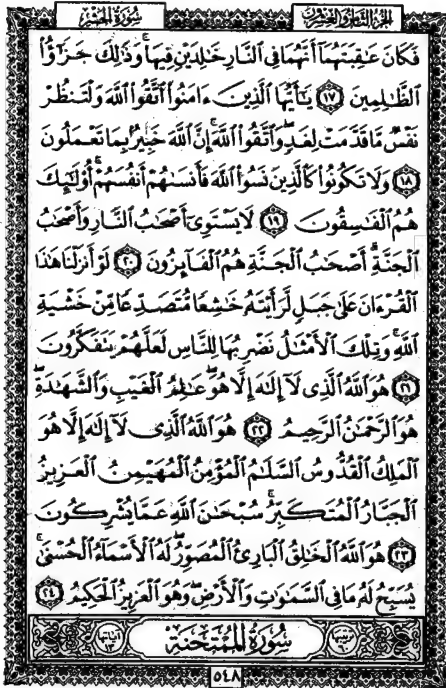 الجزء الثامن والعشرون
سورة الحشر
فَكَانَ عَٰقِبَتَهُمَآ أَنَّهُمَا فِي ٱلنَّارِ خَٰلِدَيْنِ فِيهَا ۚ وَذَٰلِكَ جَزَٰٓؤُا۟
ٱلظَّٰلِمِينَ ١٧ يَٰٓأَيُّهَا ٱلَّذِينَ ءَامَنُوا۟ ٱتَّقُوا۟ ٱللَّهَ وَلْتَنظُرْ
نَفْسٌ مَّا قَدَّمَتْ لِغَدٍ ۖ وَٱتَّقُوا۟ ٱللَّهَ ۚ إِنَّ ٱللَّهَ خَبِيرٌۢ بِمَا تَعْمَلُونَ
١٨ وَلَا تَكُونُوا۟ كَٱلَّذِينَ نَسُوا۟ ٱللَّهَ فَأَنسَىٰهُمْ أَنفُسَهُمْ ۚ أُو۟لَٰٓئِكَ
هُمُ ٱلْفَٰسِقُونَ ١٩ لَا يَسْتَوِىٓ أَصْحَٰبُ ٱلنَّارِ وَأَصْحَٰبُ
ٱلْجَنَّةِ ۚ أَصْحَٰبُ ٱلْجَنَّةِ هُمُ ٱلْفَآئِزُونَ ٢٠ لَوْ أَنزَلْنَا هَٰذَا
ٱلْقُرْءَانَ عَلَىٰ جَبَلٍ لَّرَأَيْتَهُۥ خَٰشِعًا مُّتَصَدِّعًا مِّنْ خَشْيَةِ
ٱللَّهِ ۚ وَتِلْكَ ٱلْأَمْثَٰلُ نَضْرِبُهَا لِلنَّاسِ لَعَلَّهُمْ يَتَفَكَّرُونَ
٢١ هُوَ ٱللَّهُ ٱلَّذِى لَآ إِلَٰهَ إِلَّا هُوَ ۖ عَٰلِمُ ٱلْغَيْبِ وَٱلشَّهَٰدَةِ ۖ
هُوَ ٱلرَّحْمَٰنُ ٱلرَّحِيمُ ٢٢ هُوَ ٱللَّهُ ٱلَّذِى لَآ إِلَٰهَ إِلَّا هُوَ
ٱلْمَلِكُ ٱلْقُدُّوسُ ٱلسَّلَٰمُ ٱلْمُؤْمِنُ ٱلْمُهَيْمِنُ ٱلْعَزِيزُ
ٱلْجَبَّارُ ٱلْمُتَكَبِّرُ ۚ سُبْحَٰنَ ٱللَّهِ عَمَّا يُشْرِكُونَ
٢٣ هُوَ ٱللَّهُ ٱلْخَٰلِقُ ٱلْبَارِئُ ٱلْمُصَوِّرُ ۖ لَهُ ٱلْأَسْمَآءُ ٱلْحُسْنَىٰ ۚ
يُسَبِّحُ لَهُۥ مَا فِى ٱلسَّمَٰوَٰتِ وَٱلْأَرْضِ ۖ وَهُوَ ٱلْعَزِيزُ ٱلْحَكِيمُ ٢٤
ترتيبها ٦٠
سورة الممتحنة
آياتها ١٣
٥٤٨